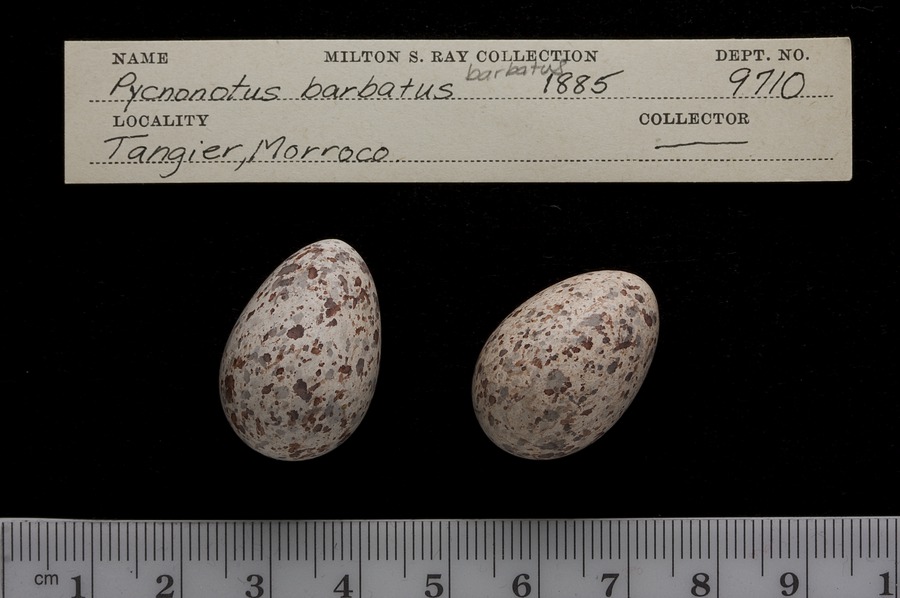 NAME MILTON S. RAY COLLECTION DEPT. NO.
barbatus
Pycnonotus barbatus 1885 9710
LOCALITY COLLECTOR
Tangier, Morroco
cm 1 2 3 4 5 6 7 8 9 1